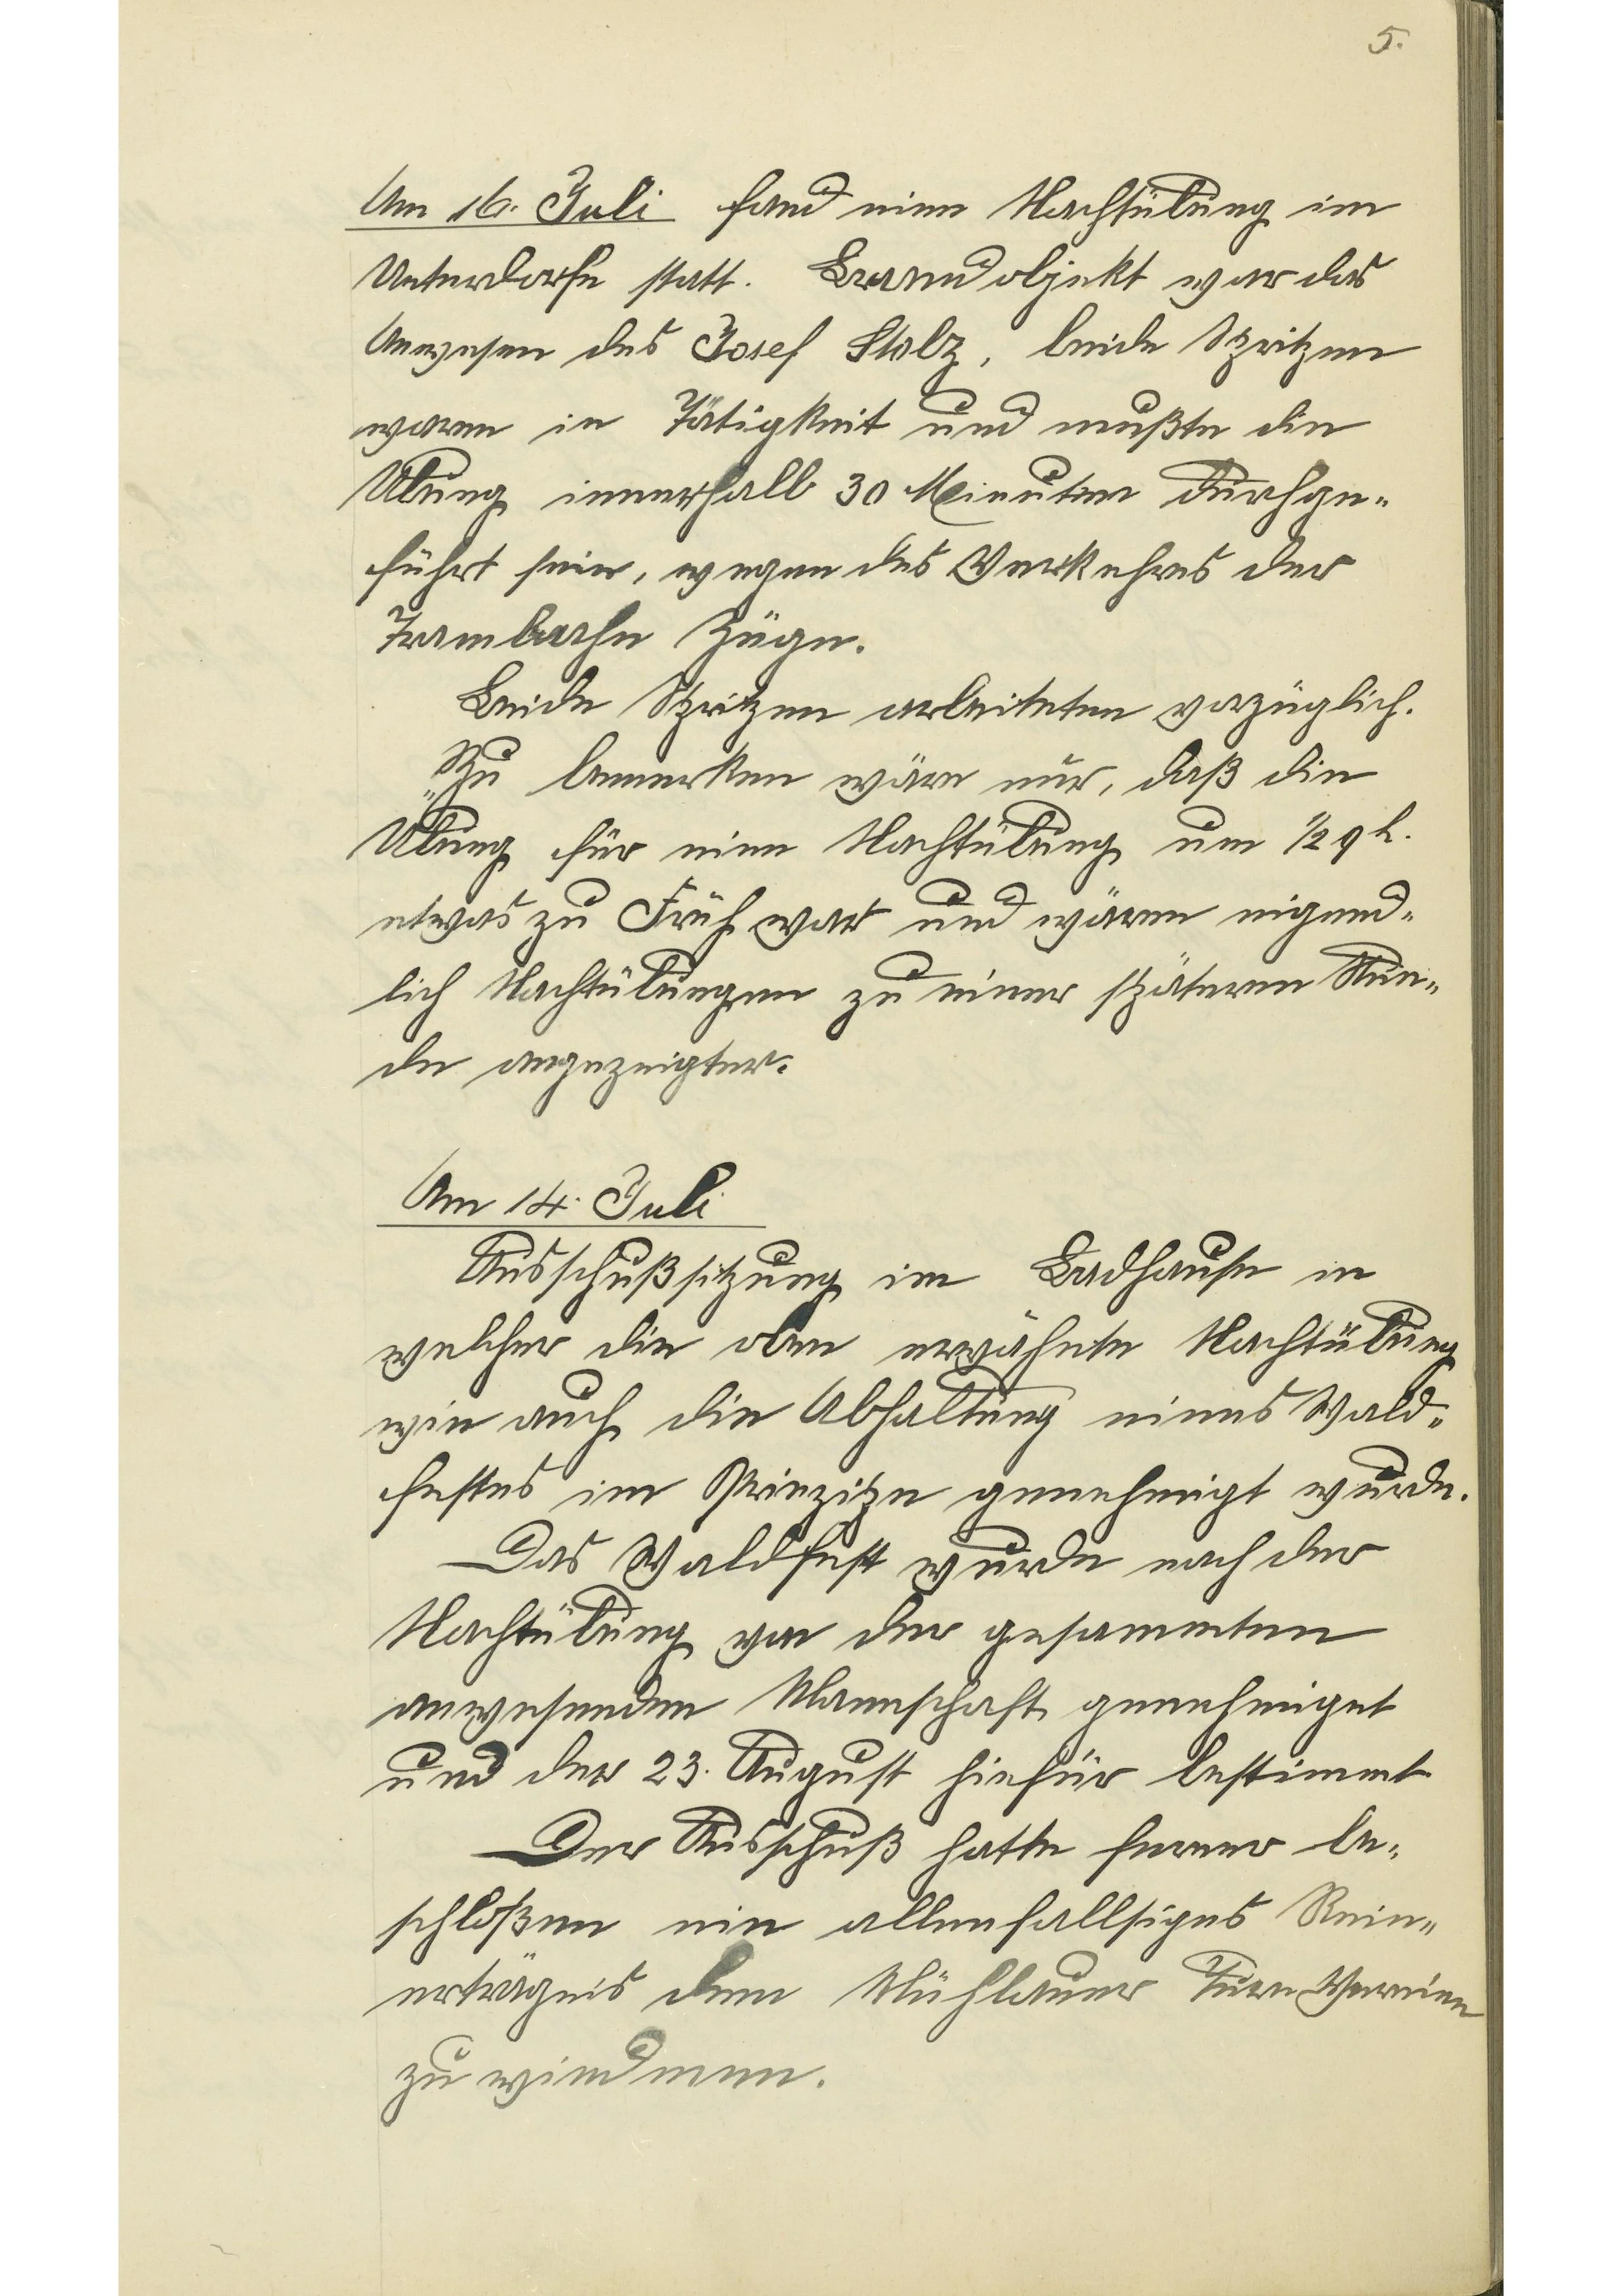 5.
Am 16. Juli fand eine Nachtübung im
Unterdorfe statt. Brandobjekt war das
Anwesen des Josef Stolz, beide Spritzen
waren in Tätigkeit und mußte die
Übung innerhalb 30 Minuten durchge-
führt sein, wegen des Verkehres der
Trambahn Züge.
Beide Spritzen arbeiteten vorzüglich.
Zu bemerken wäre nur, daß die
Übung für eine Nachtübung um 1/2 9 h.
etwas zu Früh war und wären eigend-
lich Nachtübungen zu einer späteren Stun-
de angezeigter.
Am 14. Juli
Ausschußsitzung im Badhause in
welcher die oben erwähnte Nachtübung
wie auch die Abhaltung eines Wald-
festes im Prinzipe genehmigt wurde.
Das Waldfest wurde nach der
Nachtübung von der gesammten
anwesenden Mannschaft genehmiget
und der 23. August hiefür bestimmt
Der Ausschuß hatte ferner be-
schloßen ein allenfallsiges Rein-
erträgnis dem Mühlauer Turn Vereine
zu wiedmen.